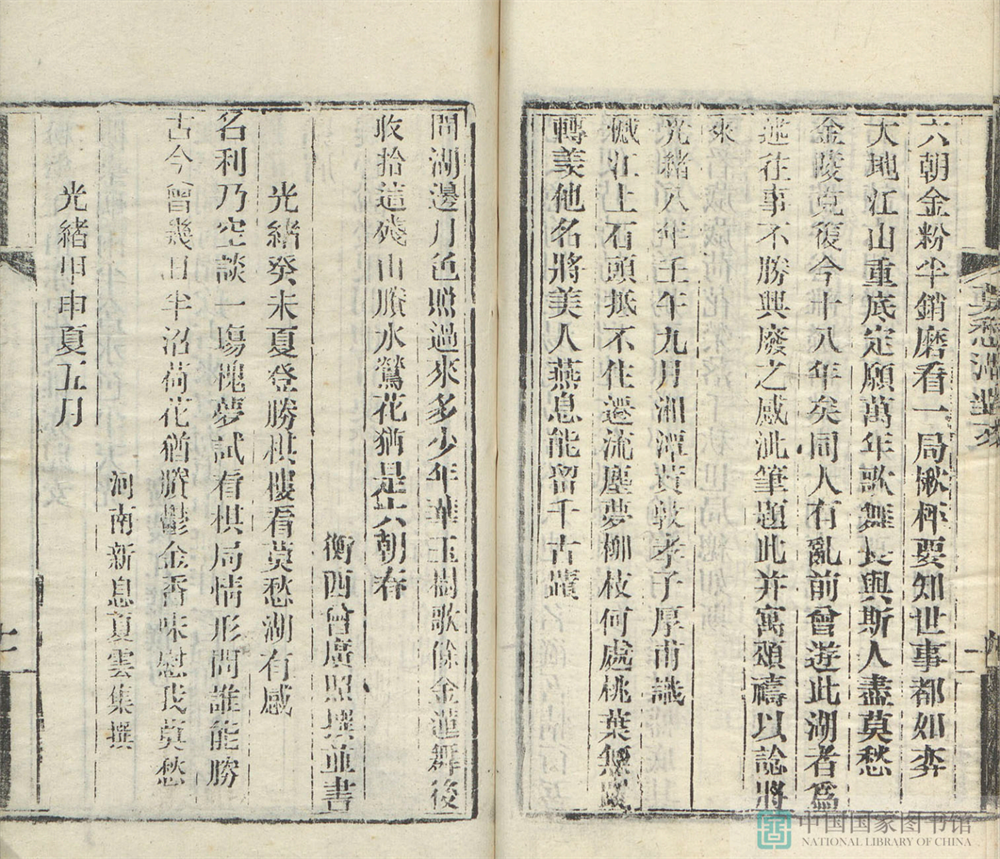 六朝金粉半銷磨看一局楸枰要知世事都如弈
大地江山重底定願萬年歌舞長與斯人盡莫愁
金陵克復今十八年矣同人有亂前曾遊此湖者爲
述往事不勝興廢之感泚筆題此并寓頌禱以諗將
來
光緒八年壬午九月湘潭黃敦孝子厚甫識
憾江上石頭抵不住遷流塵夢柳枝何處桃葉無蹤
轉羨他名將美人燕息能留千古蹟
問湖邊月色照過來多少年華玉樹歌餘金蓮舞後
收拾這殘山賸水鶯花猶是六朝春
衡西曾廣照撰並書
光緒癸未夏登勝棋樓看莫愁湖有感
名利乃空談一場槐夢試看棋局情形問誰能勝
古今曾幾日半沼荷花猶賸鬱金香味慰我莫愁
河南新息夏雲集撰
光緒甲申夏五月
莫愁湖
中国国家图书馆
NATIONAL LIBRARY OF CHINA